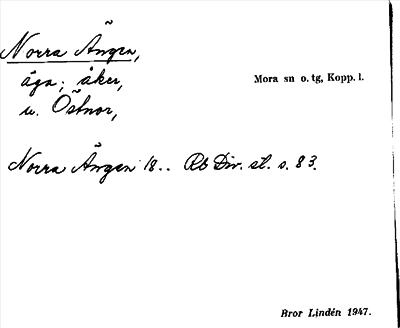 Norra Ängen,
äga; åker,
u. Östnor,
Mora sn o. tg, Kopp. l.
Norra Ängen 18.. Rb Div. st. s. 83.
Bror Lindén 1947.